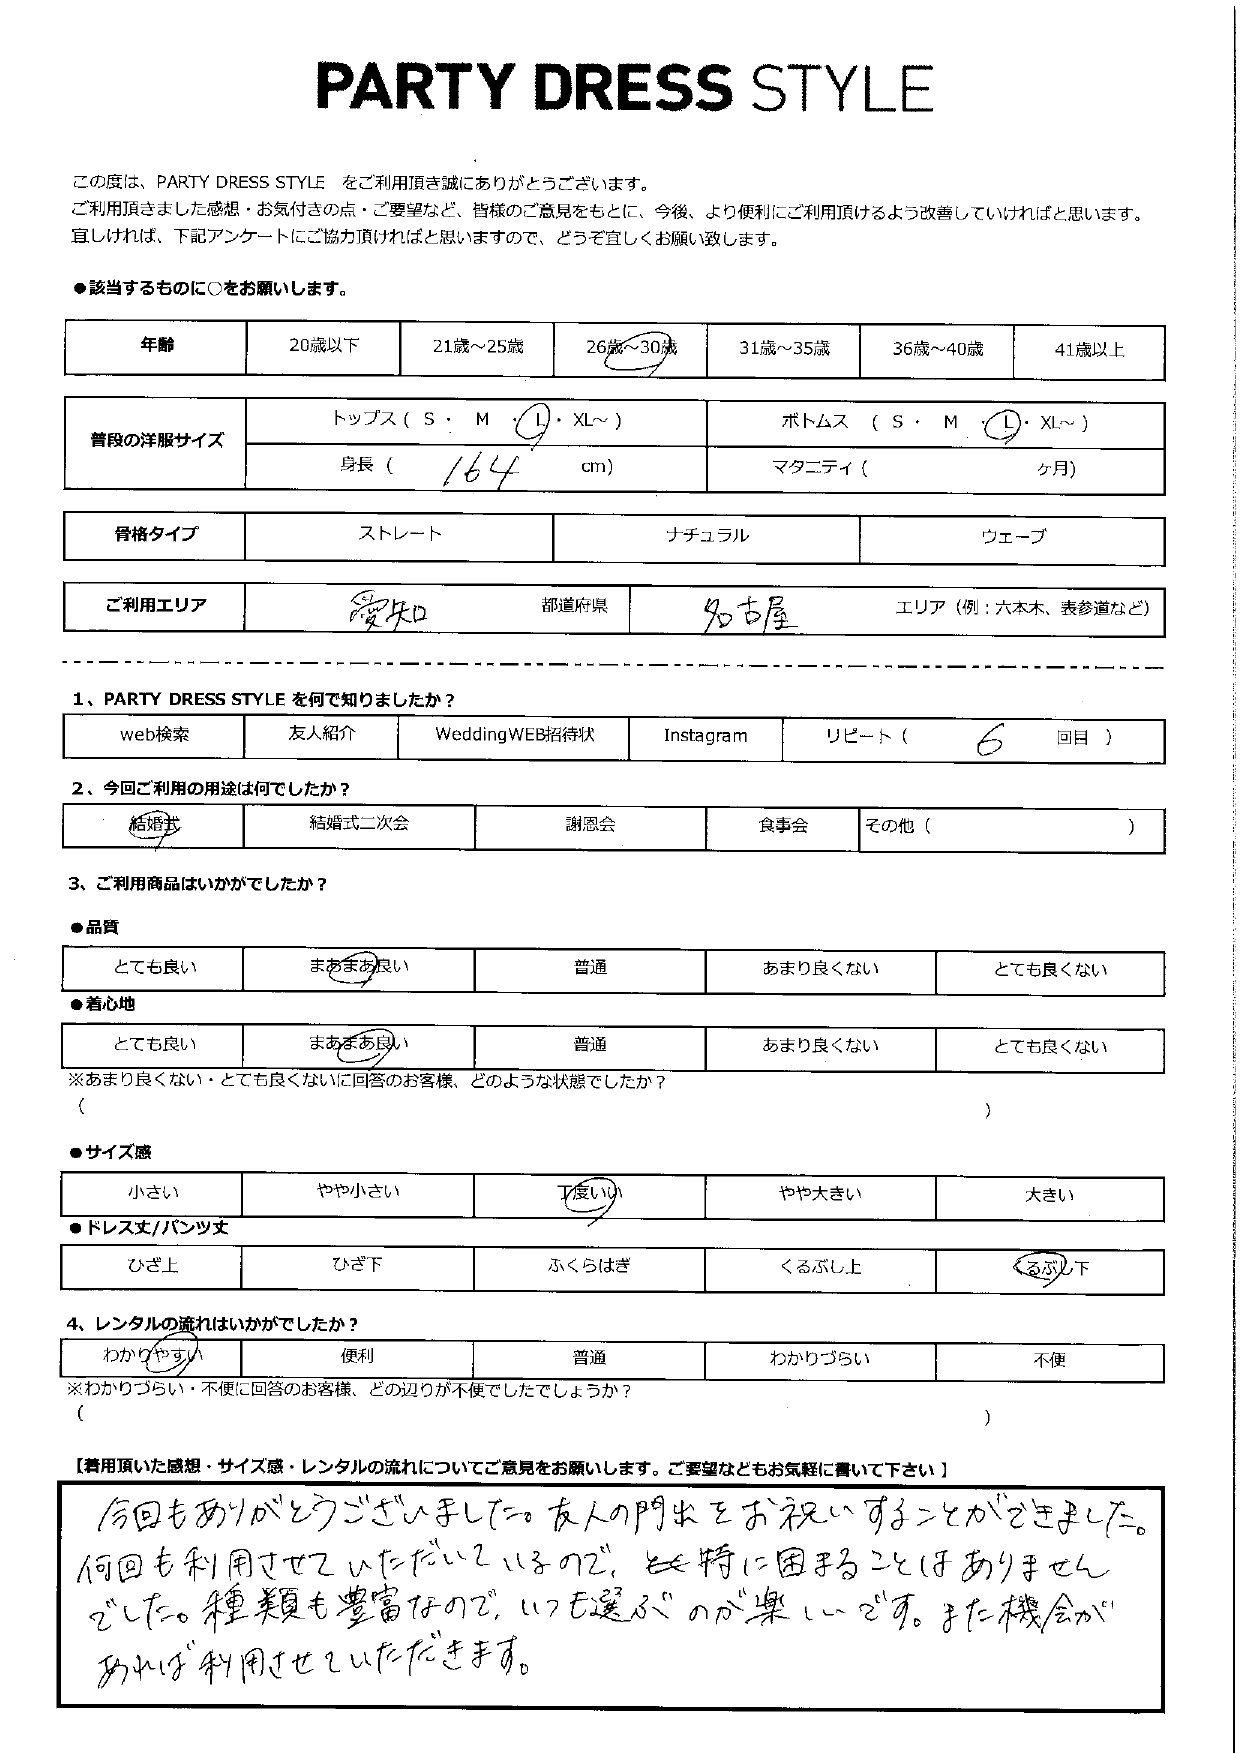 PARTY DRESS STYLE
この度は、PARTY DRESS STYLE をご利用頂き誠にありがとうございます。
ご利用頂きました感想・お気付きの点・ご要望など、皆様のご意見をもとに、今後、より便利にご利用頂けるよう改善していければと思います。
宜しければ、下記アンケートにご協力頂ければと思いますので、どうぞ宜しくお願い致します。
●該当するものに○をお願いします。
年齢 20歳以下 21歳～25歳 26歳～30歳 31歳～35歳 36歳～40歳 41歳以上
普段の洋服サイズ トップス ( S ・ M ・ L ・ XL～ ) ボトムス ( S ・ M ・ L ・ XL～ )
身長 ( 164 cm) マタニティ ( ヶ月)
骨格タイプ ストレート ナチュラル ウェーブ
ご利用エリア 愛知 都道府県 名古屋 エリア（例：六本木、表参道など）
1、PARTY DRESS STYLE を何で知りましたか？
web検索 友人紹介 WeddingWEB招待状 Instagram リピート ( 6 回目 )
2、今回ご利用の用途は何でしたか？
結婚式 結婚式二次会 謝恩会 食事会 その他 ( )
3、ご利用商品はいかがでしたか？
●品質
とても良い まあまあ良い 普通 あまり良くない とても良くない
●着心地
とても良い まあまあ良い 普通 あまり良くない とても良くない
※あまり良くない・とても良くないに回答のお客様、どのような状態でしたか？
( )
●サイズ感
小さい やや小さい 丁度いい やや大きい 大きい
●ドレス丈/パンツ丈
ひざ上 ひざ下 ふくらはぎ くるぶし上 くるぶし下
4、レンタルの流れはいかがでしたか？
わかりやすい 便利 普通 わかりづらい 不便
※わかりづらい・不便に回答のお客様、どの辺りが不便でしたでしょうか？
( )
【着用頂いた感想・サイズ感・レンタルの流れについてご意見をお願いします。ご要望などもお気軽に書いて下さい】
今回もありがとうございました。友人の門出をお祝いすることができました。
何回も利用させていただいているので、特に困まることはありません
でした。種類も豊富なので、いつも選ぶのが楽しいです。また機会が
あれば利用させていただきます。